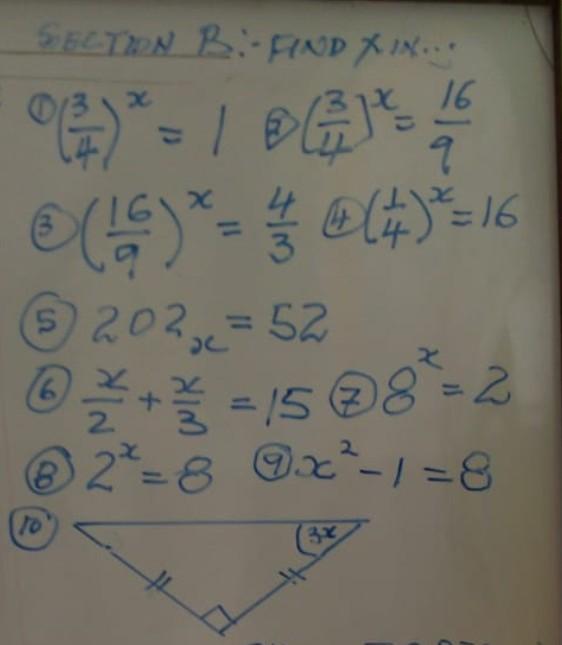 SECTION B:- FIND X IN...
① (3/4)^x = 1 ② (3/4)^x = 16/9
③ (16/9)^x = 4/3 ④ (1/4)^x = 16
⑤ 202ₓ = 52
⑥ x/2 + x/3 = 15 ⑦ 8^x = 2
⑧ 2^x = 8 ⑨ x² - 1 = 8
⑩ 3x